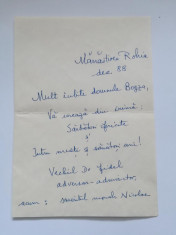 Mănăstirea Rohia
dec. 88
Mult iubite domnule Buzea,
Vă urează din inimă:
Sărbători sfinte
și
Întru mulți și sănătoși ani!
Vechiul Dv fidel
admirator,
sam: monahul Nicolae